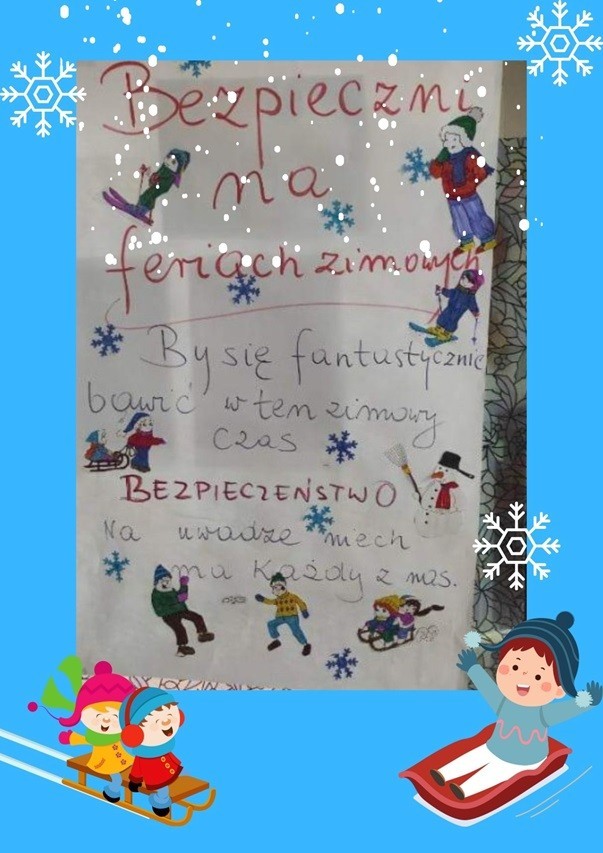 Bezpieczni
na
feriach zimowych
By się fantastycznie
bawić w ten zimowy
czas
BEZPIECZEŃSTWO
Na uwadze niech
ma każdy z nas.